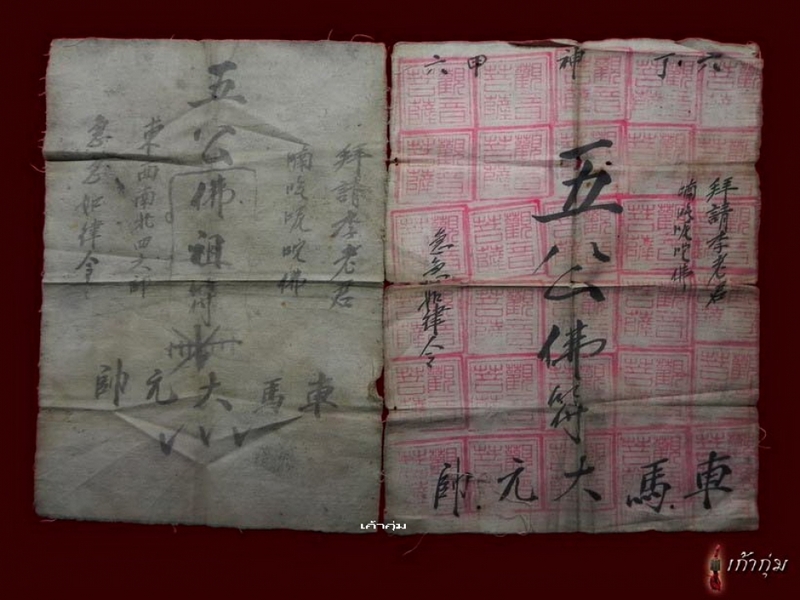 拜請李老君
佛
五公佛祖符
東西南北四大
急急如律令
車馬大元帥
六丁神甲六
拜請李老君
佛
五公佛符
急急如律令
車馬大元帥
觀音菩薩
เก้ากุ่ม
เก้ากุ่ม